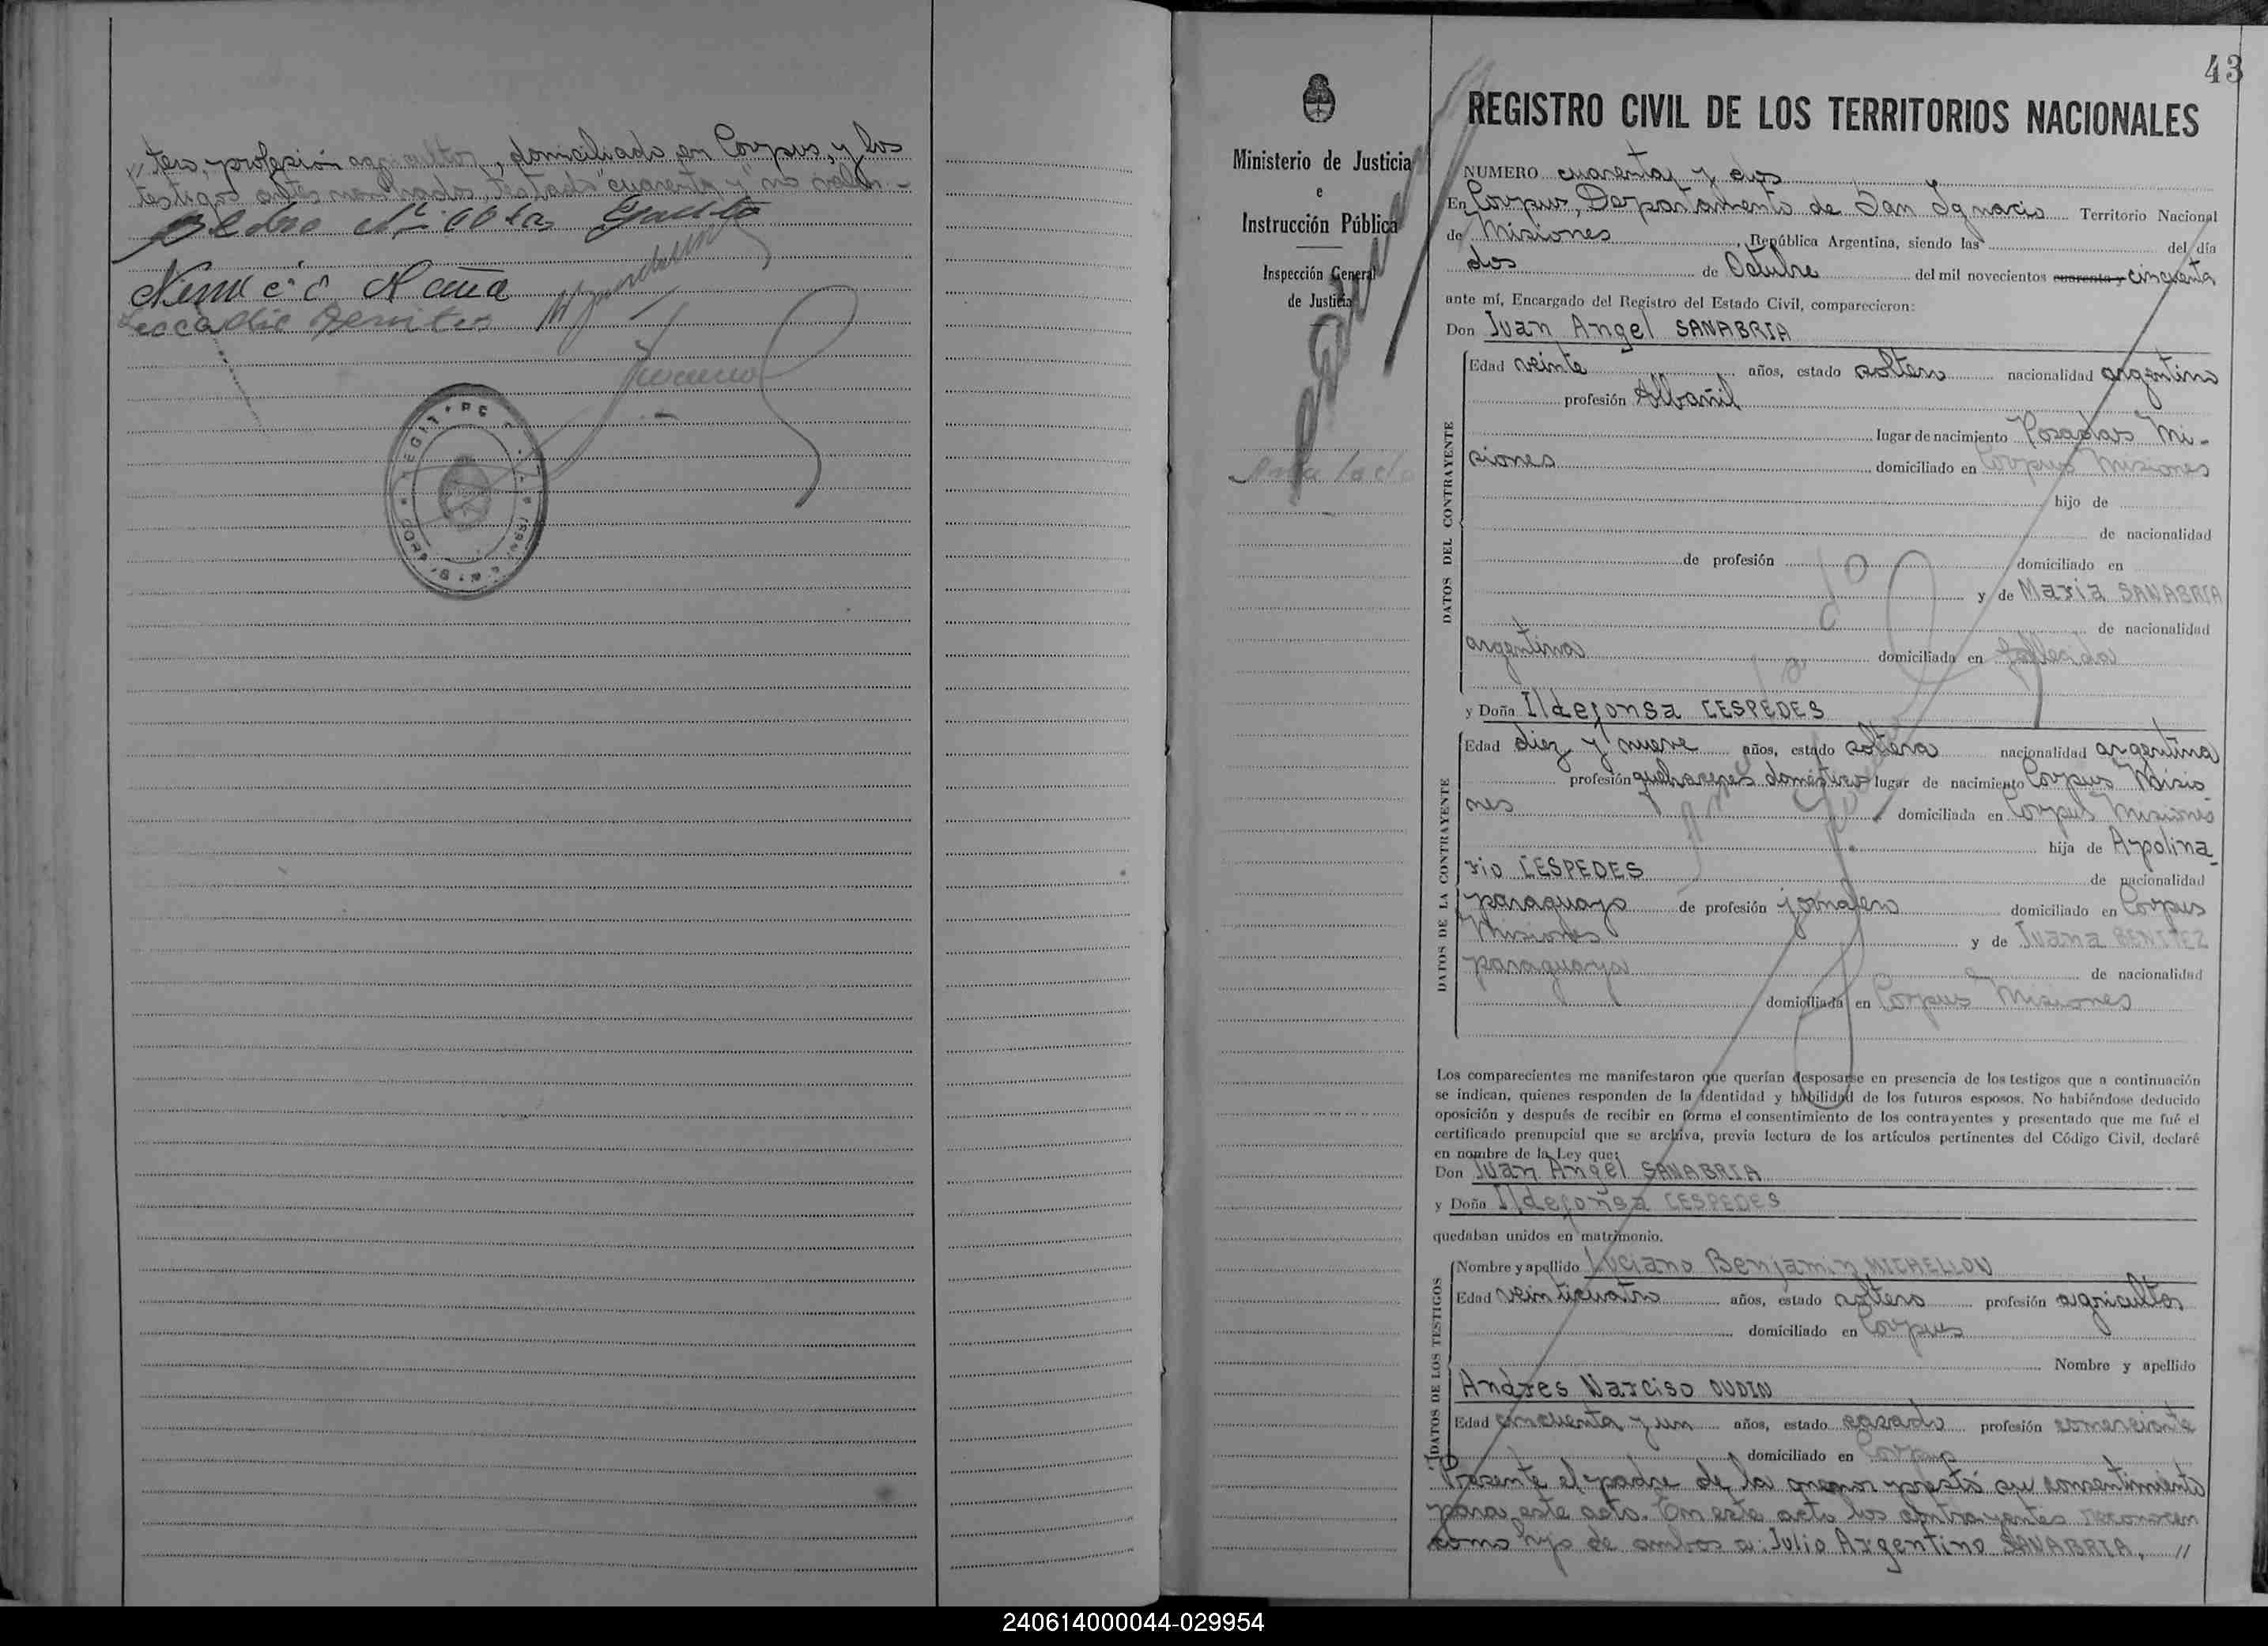 "tero, profesión agricultor, domiciliado en Corpus, y los
testigos antes nombrados. Testado "cuarenta y" no vale.-
Nemecio Maña
Leocadio Benitez
43
Ministerio de Justicia
e
Instrucción Pública
Inspección General
de Justicia
REGISTRO CIVIL DE LOS TERRITORIOS NACIONALES
NUMERO cuarenta y dos
En Corpus, Departamento de San Ignacio Territorio Nacional
de Misiones, República Argentina, siendo las del día
dos de Octubre del mil novecientos cuarenta y cincuenta
ante mí, Encargado del Registro del Estado Civil, comparecieron:
Don Juan Angel SANABRIA
DATOS DEL CONTRAYENTE
Edad veinte años, estado soltero nacionalidad argentino
profesión Albañil
lugar de nacimiento Posadas Mi-
siones domiciliado en Corpus Misiones
hijo de
de nacionalidad
de profesión domiciliado en
y de Maria SANABRIA
de nacionalidad
argentina domiciliada en fallecida
y Doña Ildefonsa CESPEDES
DATOS DE LA CONTRAYENTE
Edad diez y nueve años, estado soltera nacionalidad argentina
profesión quehaceres domésticos lugar de nacimiento Corpus Misio
nes domiciliada en Corpus Misiones
hija de Apolina-
rio CESPEDES de nacionalidad
paraguayo de profesión jornalero domiciliado en Corpus
Misiones y de Juana BENITEZ
paraguaya de nacionalidad
domiciliada en Corpus Misiones
Los comparecientes me manifestaron que querían desposarse en presencia de los testigos que a continuación
se indican, quienes responden de la identidad y habilidad de los futuros esposos. No habiéndose deducido
oposición y después de recibir en forma el consentimiento de los contrayentes y presentado que me fué el
certificado prenupcial que se archiva, previa lectura de los artículos pertinentes del Código Civil, declaré
en nombre de la Ley que:
Don Juan Angel SANABRIA
y Doña Ildefonsa CESPEDES
quedaban unidos en matrimonio.
DATOS DE LOS TESTIGOS
Nombre y apellido Luciano Benjamin MICHELLOD
Edad veinticuatro años, estado soltero profesión agricultor
domiciliado en Corpus
Nombre y apellido
Andres Narciso OUDIN
Edad cincuenta y un años, estado casado profesión comerciante
domiciliado en Corpus
Presente el padre de la menor presta su consentimiento
para este acto. En este acto los contrayentes reconocen
como hijo de ambos a: Julio Argentino SANABRIA, "
240614000044-029954